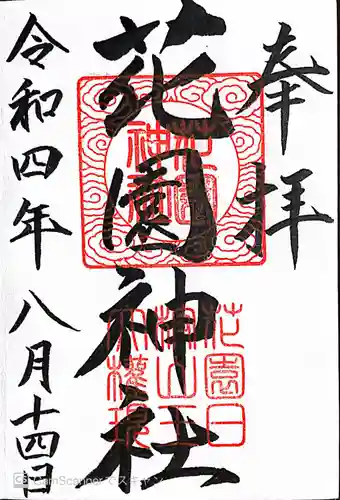 奉拝
花園神社
令和四年 八月十四日
花園神社
花園日
枝山王
大権現
CamScannerでスキャン